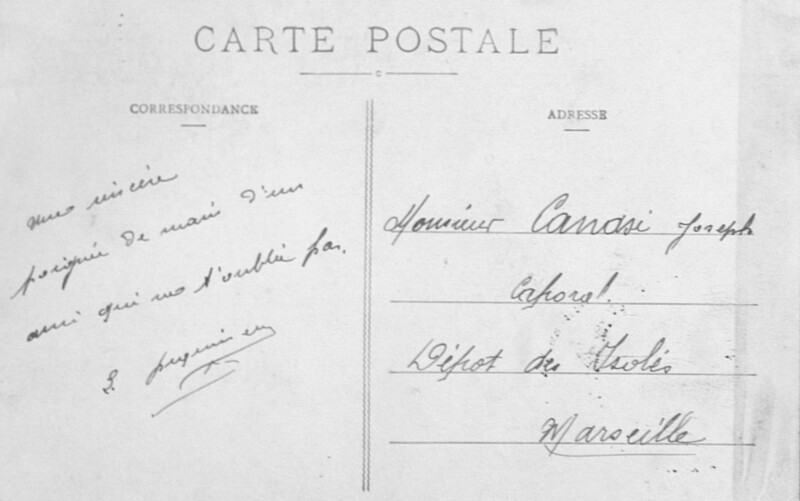 CARTE POSTALE
CORRESPONDANCE
une sincère
poignée de main d'un
ami qui ne t'oublie pas.
ADRESSE
Monsieur Canasi Joseph
Caporal
Dépot des Isolés
Marseille